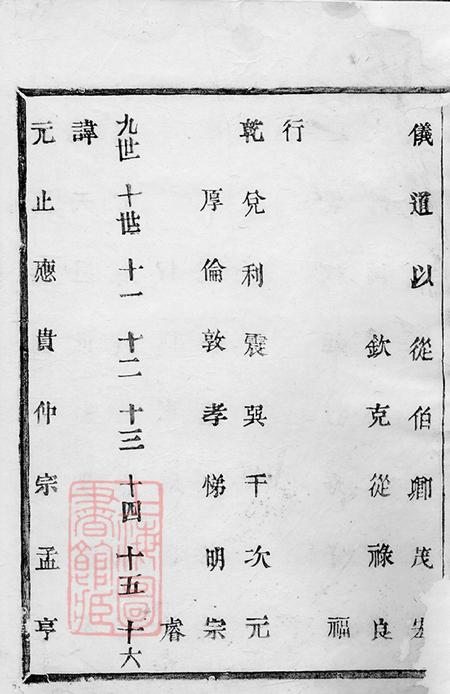 儀道以從伯卿茂
欽克從祿良
福
行
乾兌利震巽干次元
厚倫敦孝悌明宗
睿
九世 十世 十一 十二 十三 十四 十五 十六
諱
元止應貴仲宗孟亨
上海圖
書館藏